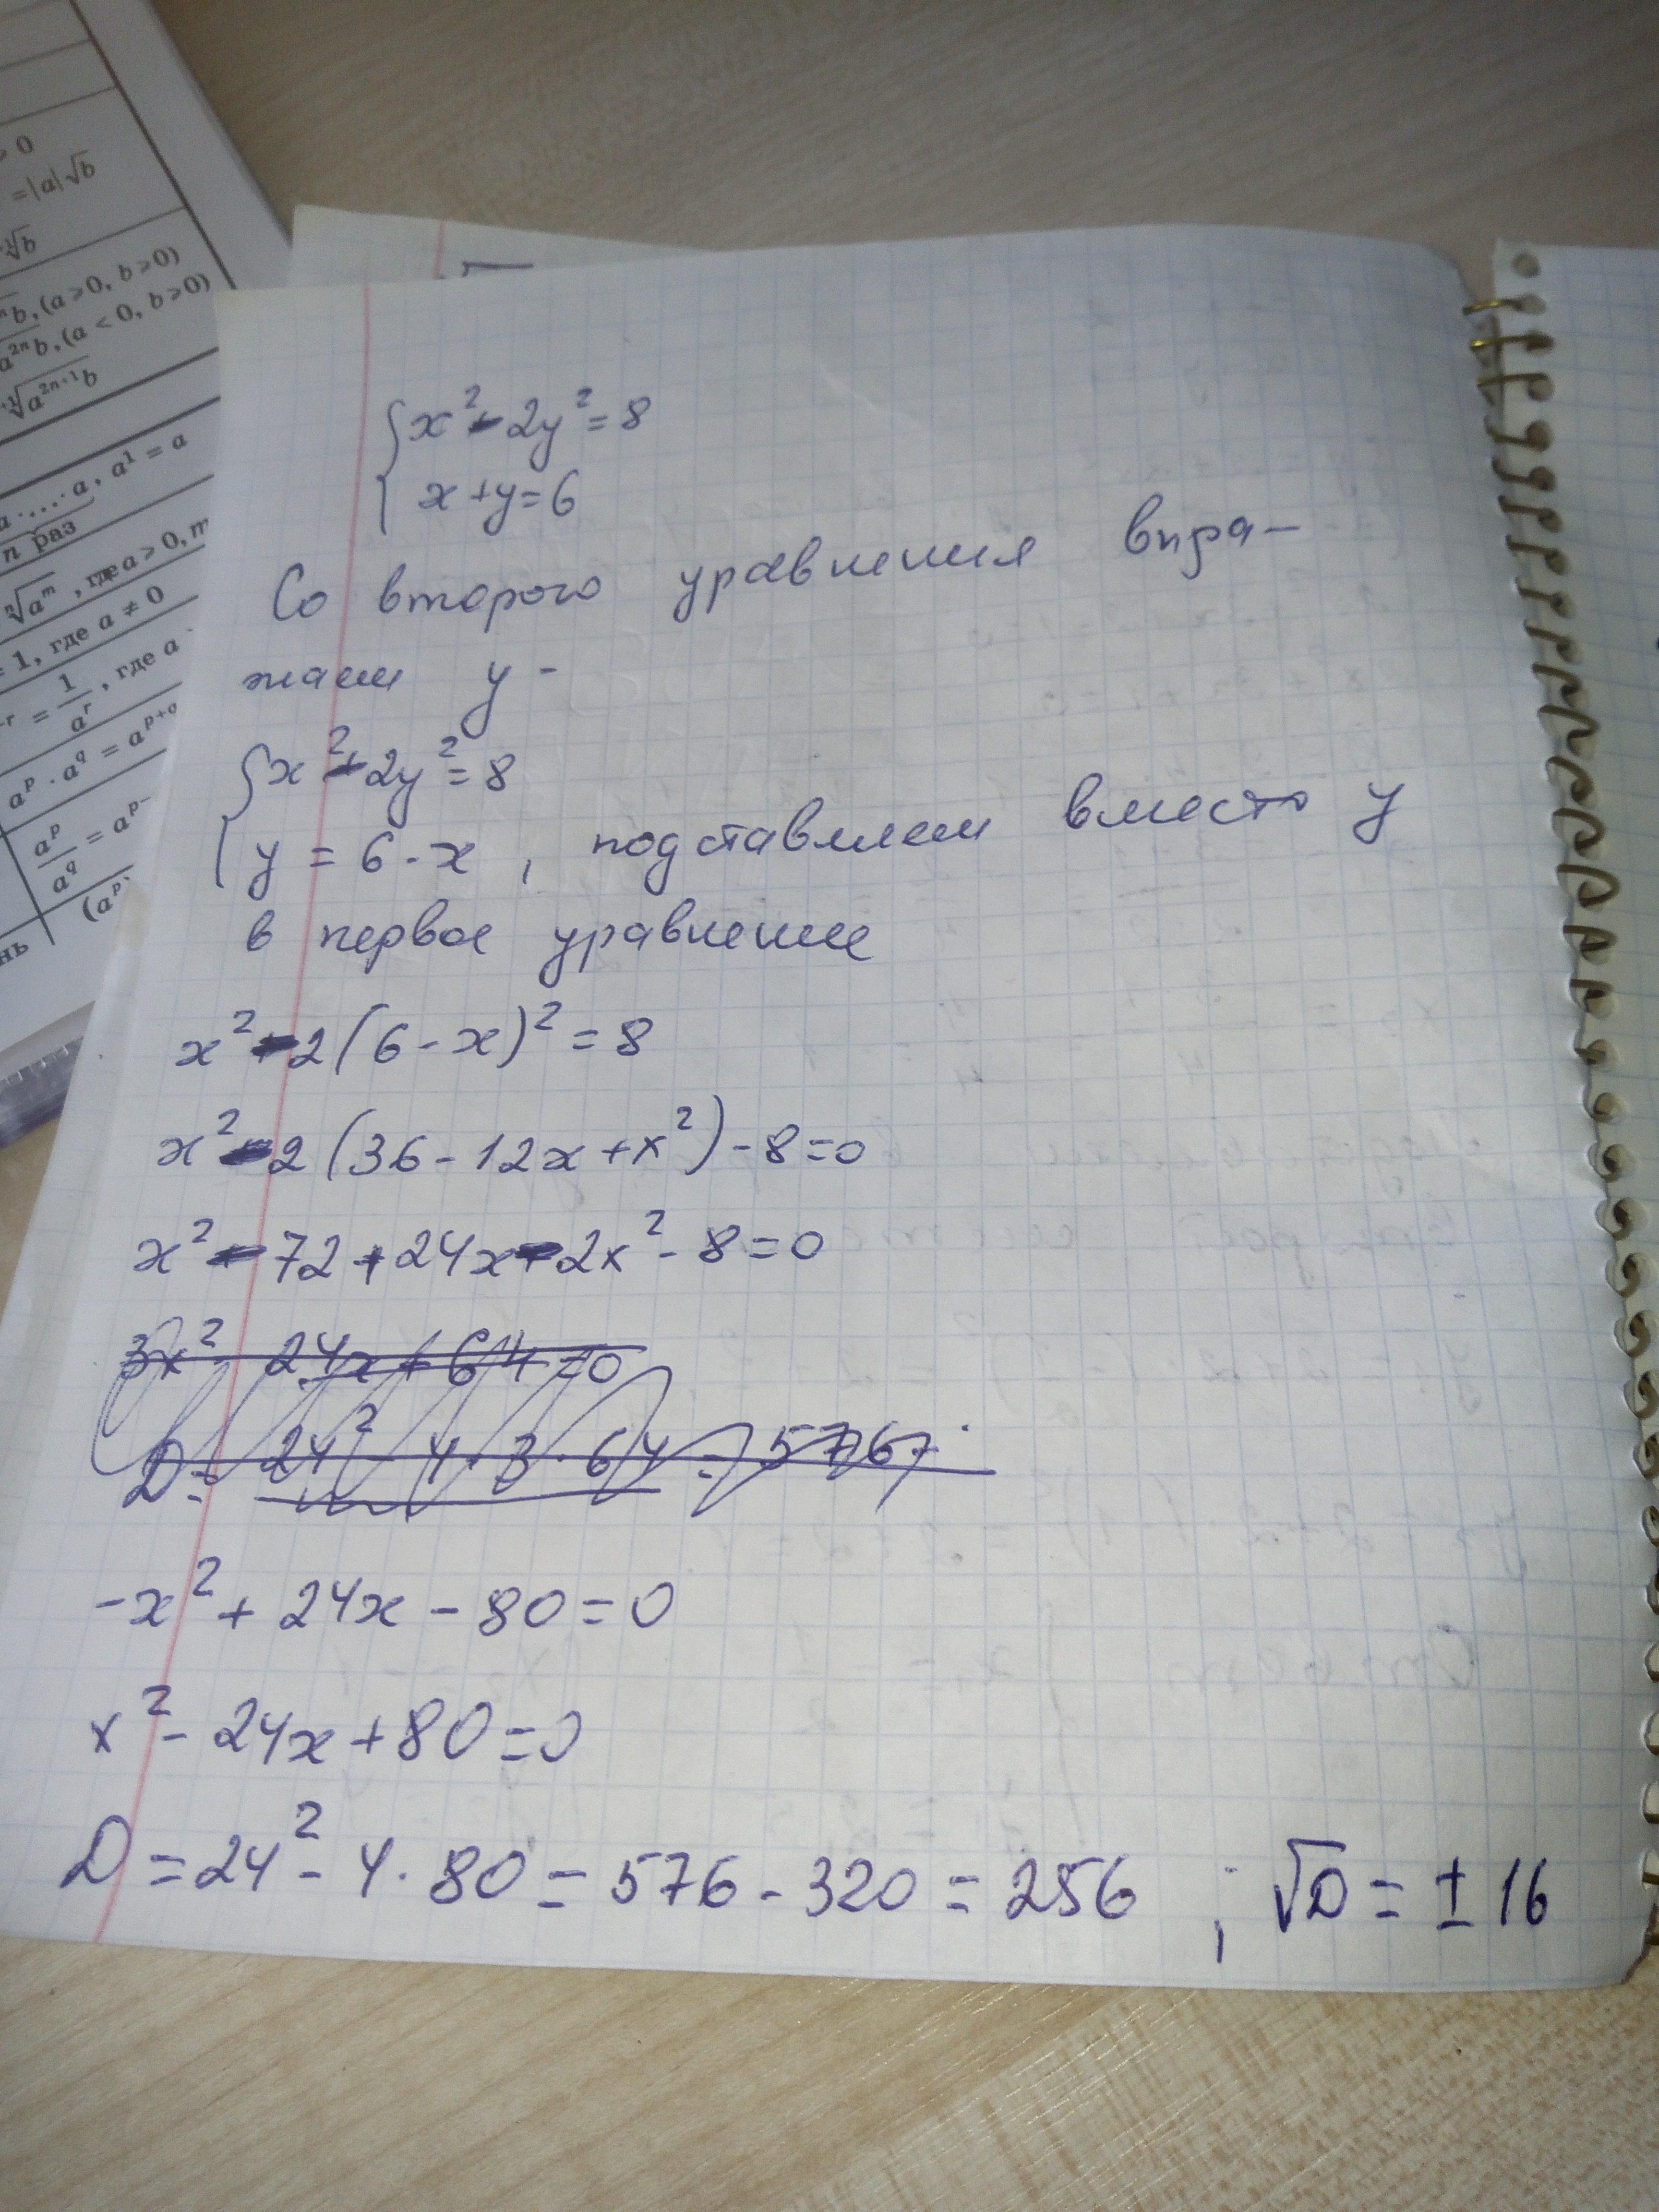 > 0
= |a|√b
b, (a > 0, b > 0)
a²ⁿb, (a < 0, b > 0)
a²ⁿ⁺¹b
a · ... · a, a¹ = a
n раз
ⁿ√aᵐ, где a > 0, m
= 1, где a ≠ 0
⁻ʳ = 1/aʳ, где a
aᵖ · a^q = a^(p+q
aᵖ/a^q = a^(p-
(aᵖ
нь
{x² - 2y² = 8
x + y = 6
Со второго уравнения выра-
жаем y -
{x² - 2y² = 8
y = 6 - x, подставляем вместо y
в первое уравнение
x² - 2(6 - x)² = 8
x² - 2(36 - 12x + x²) - 8 = 0
x² - 72 + 24x - 2x² - 8 = 0
3x² - 24x + 64 = 0
D = 24² - 4 · 3 · 64 = 576
-x² + 24x - 80 = 0
x² - 24x + 80 = 0
D = 24² - 4 · 80 = 576 - 320 = 256 ; √D = ± 16